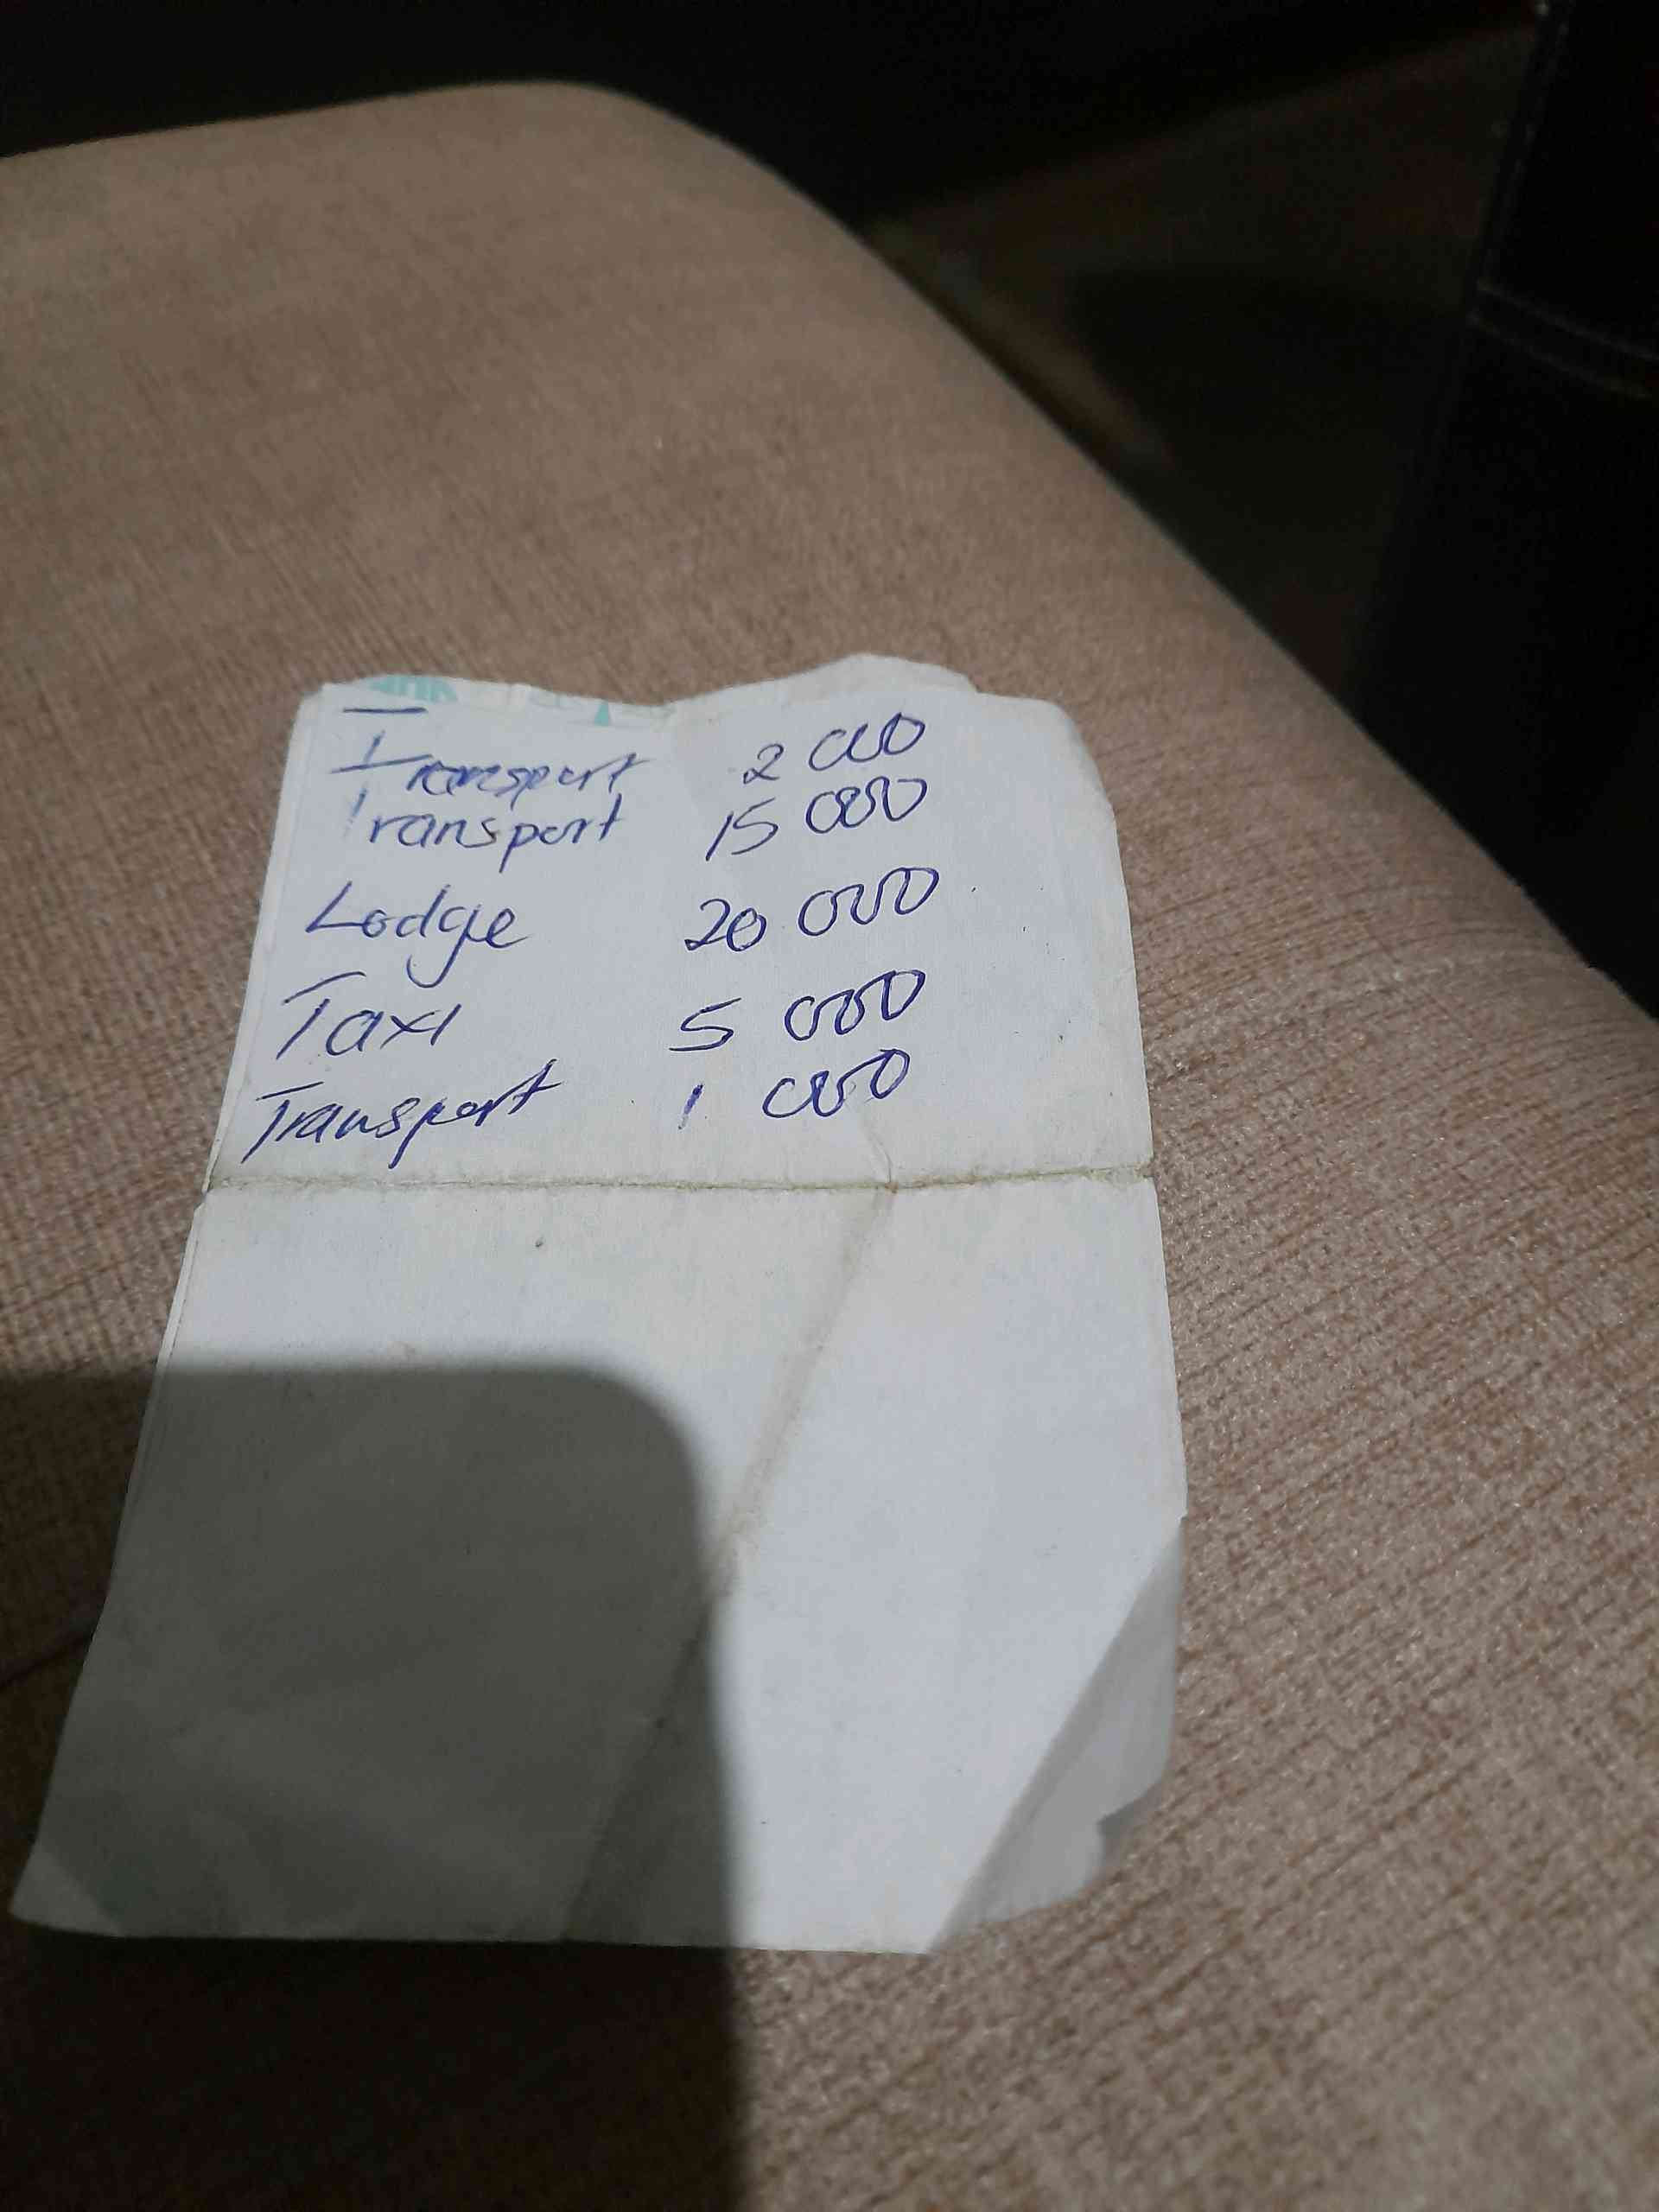 Transport 2 000
Transport 15 000
Lodge 20 000
Taxi 5 000
Transport 1 000